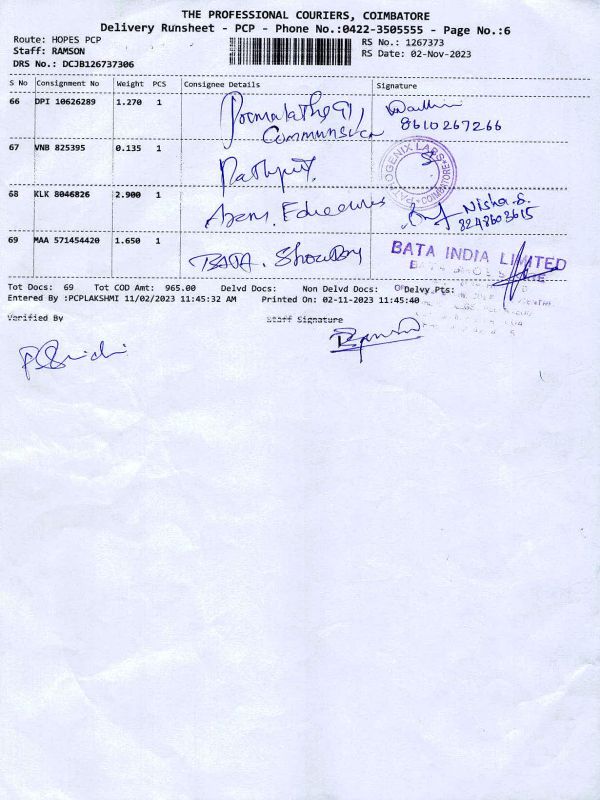 THE PROFESSIONAL COURIERS, COIMBATORE
Delivery Runsheet - PCP - Phone No.:0422-3505555 - Page No.:6
Route: HOPES PCP
RS No.: 1267373
Staff: RAMSON
RS Date: 02-Nov-2023
DRS No.: DCJB126737306
S No Consignment No Weight PCS Consignee Details Signature
66 DPI 10626289 1.270 1
8610267266
67 VNB 825395 0.135 1
PATHOGENIX LABS COIMBATORE
68 KLK 8046826 2.900 1
Nisha.S.
8248603615
69 MAA 571454420 1.650 1 BATA. Showroom
BATA INDIA LIMITED
Tot Docs: 69 Tot COD Amt: 965.00 Delvd Docs: Non Delvd Docs: Delvy.Pts:
Entered By :PCPLAKSHMI 11/02/2023 11:45:32 AM Printed On: 02-11-2023 11:45:40
Verified By Staff Signature